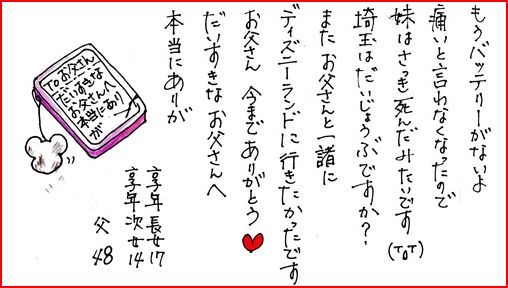 もうバッテリーがないよ
痛いと言わなくなったので
妹はさっき死んだみたいです(ToT)
埼玉はだいじょうぶですか?
またお父さんと一諸に
ディズニーランドに行きたかったです
お父さん 今までありがとう❤
だいすきなお父さんへ
本当にありが
Toお父さん
だいすきな
お父さんへ
本当にあり
が
享年長女17
享年次女14
父 48